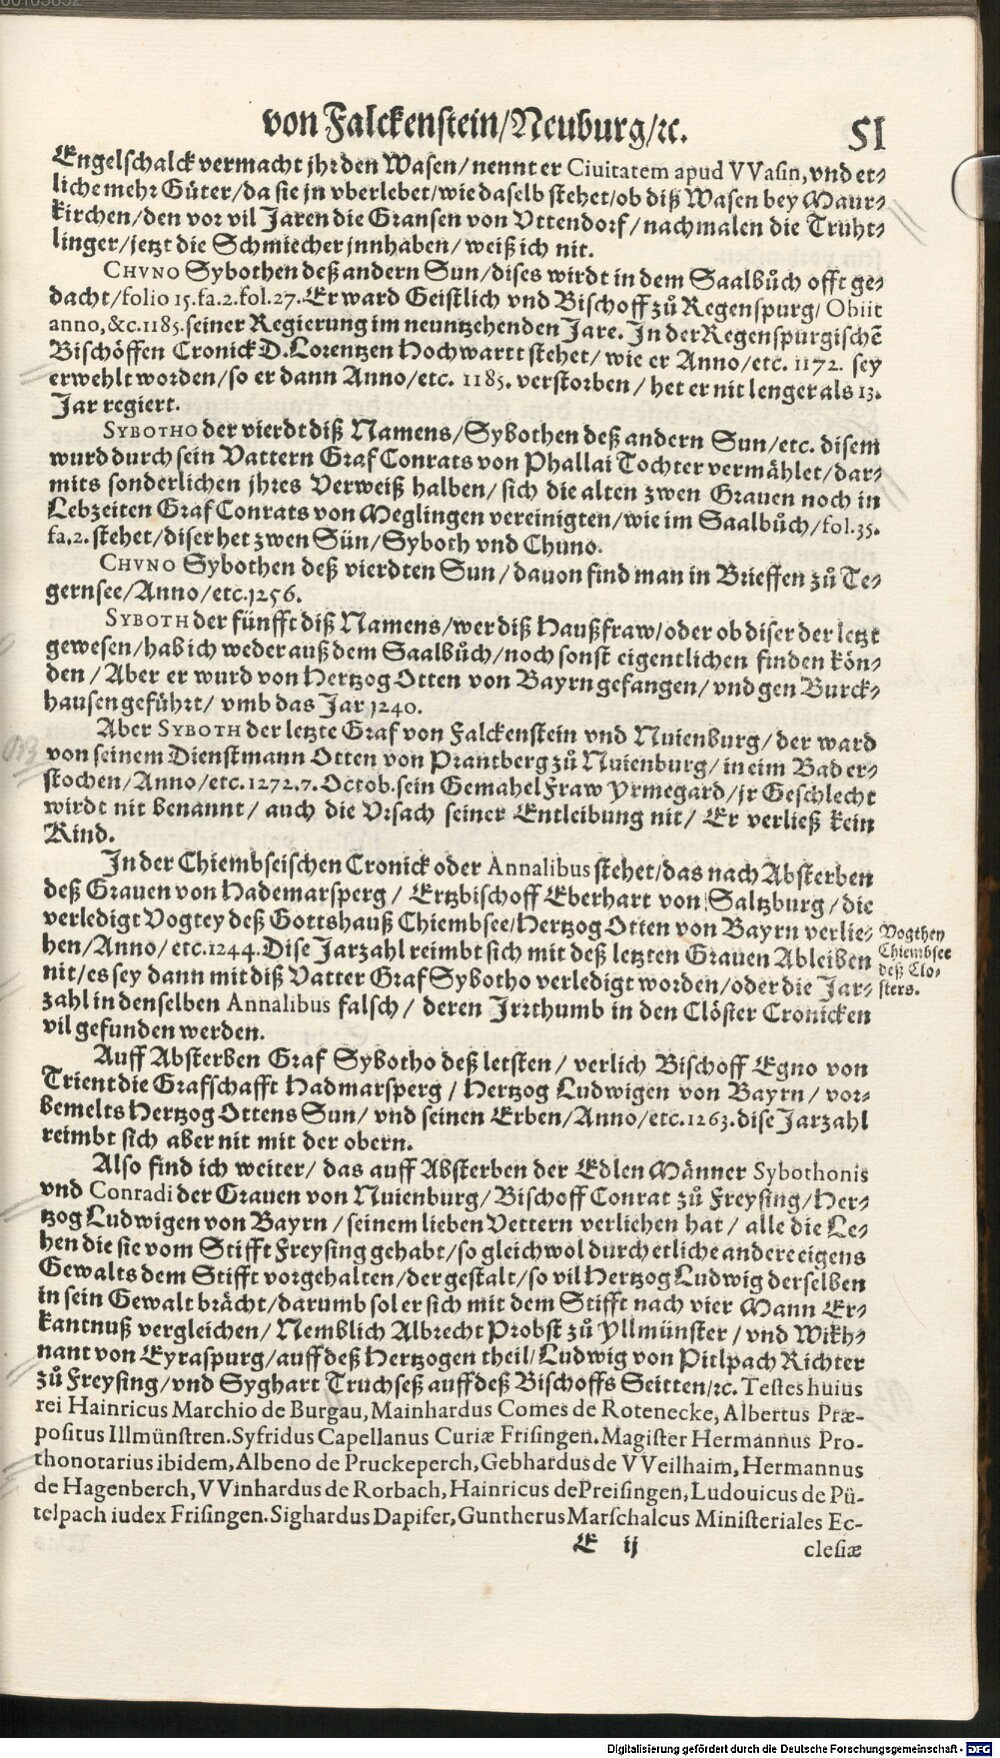 von Falckenstein/Neuburg/ꝛc. 51
Engelschalck vermacht jhr den Wasen/ nennt er Ciuitatem apud VVasin, vnd et-
liche mehr Güter/ da sie jn vberlebet/ wie daselb stehet/ ob diß Wasen bey Maur-
kirchen/ den vor vil Jaren die Gransen von Vttendorf/ nachmalen die Trüht-
linger/ jetzt die Schmiecher jnnhaben/ weiß ich nit.
CHVNO Sybothen deß andern Sun/ dises wirdt in dem Saalbuͦch offt ge-
dacht/ folio 15. fa. 2. fol. 27. Er ward Geistlich vnd Bischoff zuͦ Regenspurg/ Obiit
anno, &c. 1185. seiner Regierung im neuntzehenden Jare. In der Regenspurgischē
Bischöffen Cronick D. Lorentzen Hochwartt stehet/ wie er Anno/ etc. 1172. sey
erwehlt worden/ so er dann Anno/ etc. 1185. verstorben/ het er nit lenger als 13.
Jar regiert.
SYBOTHO der vierdt diß Namens/ Sybothen deß andern Sun/ etc. disem
wurd durch sein Vattern Graf Conrats von Phallai Tochter vermählet/ dar-
mits sonderlichen jhres Verweiß halben/ sich die alten zwen Grauen noch in
Lebzeiten Graf Conrats von Meglingen vereinigten/ wie im Saalbuͦch/ fol. 35.
fa. 2. stehet/ diser het zwen Sün/ Syboth vnd Chuno.
CHVNO Sybothen deß vierdten Sun/ dauon find man in Brieffen zuͦ Te-
gernsee/ Anno/ etc. 1256.
SYBOTH der fünfft diß Namens/ wer diß Haußfraw/ oder ob diser der letzt
gewesen/ hab ich weder auß dem Saalbuͦch/ noch sonst eigentlichen finden kön-
den/ Aber er wurd von Hertzog Otten von Bayrn gefangen/ vnd gen Burck-
hausen geführt/ vmb das Jar 1240.
Aber SYBOTH der letzte Graf von Falckenstein vnd Nuienburg/ der ward
von seinem Dienstmann Otten von Prantberg zuͦ Nuienburg/ in eim Bad er-
stochen/ Anno/ etc. 1272. 7. Octob. sein Gemahel Fraw Yrmegard/ jr Geschlecht
wirdt nit benannt/ auch die Vrsach seiner Entleibung nit/ Er verließ kein
Kind.
In der Chiembseischen Cronick oder Annalibus stehet/ das nach Absterben
deß Grauen von Hademarsperg/ Ertzbischoff Eberhart von Saltzburg/ die
verledigt Vogtey deß Gottshauß Chiembsee/ Hertzog Otten von Bayrn verlie-
hen/ Anno/ etc. 1244. Dise Jarzahl reimbt sich mit deß letzten Grauen Ableiben
nit/ es sey dann mit diß Vatter Graf Sybotho verledigt worden/ oder die Jar-
zahl in denselben Annalibus falsch/ deren Irrthumb in den Clöster Cronicken
vil gefunden werden.
Vogthey
Chiembsee
deß Clo-
sters.
Auff Absterben Graf Sybotho deß letsten/ verlich Bischoff Egno von
Trient die Grafschafft Hadmarsperg/ Hertzog Ludwigen von Bayrn/ vor-
bemelts Hertzog Ottens Sun/ vnd seinen Erben/ Anno/ etc. 1263. dise Jarzahl
reimbt sich aber nit mit der obern.
Also find ich weiter/ das auff Absterben der Edlen Männer Sybothonis
vnd Conradi der Grauen von Nuienburg/ Bischoff Conrat zuͦ Freysing/ Her-
tzog Ludwigen von Bayrn/ seinem lieben Vettern verliehen hat/ alle die Le-
hen die sie vom Stifft Freysing gehabt/ so gleichwol durch etliche andere eigens
Gewalts dem Stifft vorgehalten/ der gestalt/ so vil Hertzog Ludwig derselben
in sein Gewalt brächt/ darumb sol er sich mit dem Stifft nach vier Mann Er-
kantnuß vergleichen/ Nemblich Albrecht Probst zuͦ Yllmünster/ vnd Wikh-
nant von Eyraspurg/ auff deß Hertzogen theil/ Ludwig von Pitlpach Richter
zuͦ Freysing/ vnd Syghart Truchseß auff deß Bischoffs Seitten/ ꝛc. Testes huius
rei Hainricus Marchio de Burgau, Mainhardus Comes de Rotenecke, Albertus Præ-
positus Illmünstren. Syfridus Capellanus Curiæ Frisingen. Magister Hermannus Pro-
thonotarius ibidem, Albeno de Pruckeperch, Gebhardus de VVeilhaim, Hermannus
de Hagenberch, VVinhardus de Rorbach, Hainricus de Preisingen, Ludouicus de Pü-
telpach iudex Frisingen. Sighardus Dapifer, Guntherus Marschalcus Ministeriales Ec-
E ij clesiæ
Digitalisierung gefördert durch die Deutsche Forschungsgemeinschaft - DFG